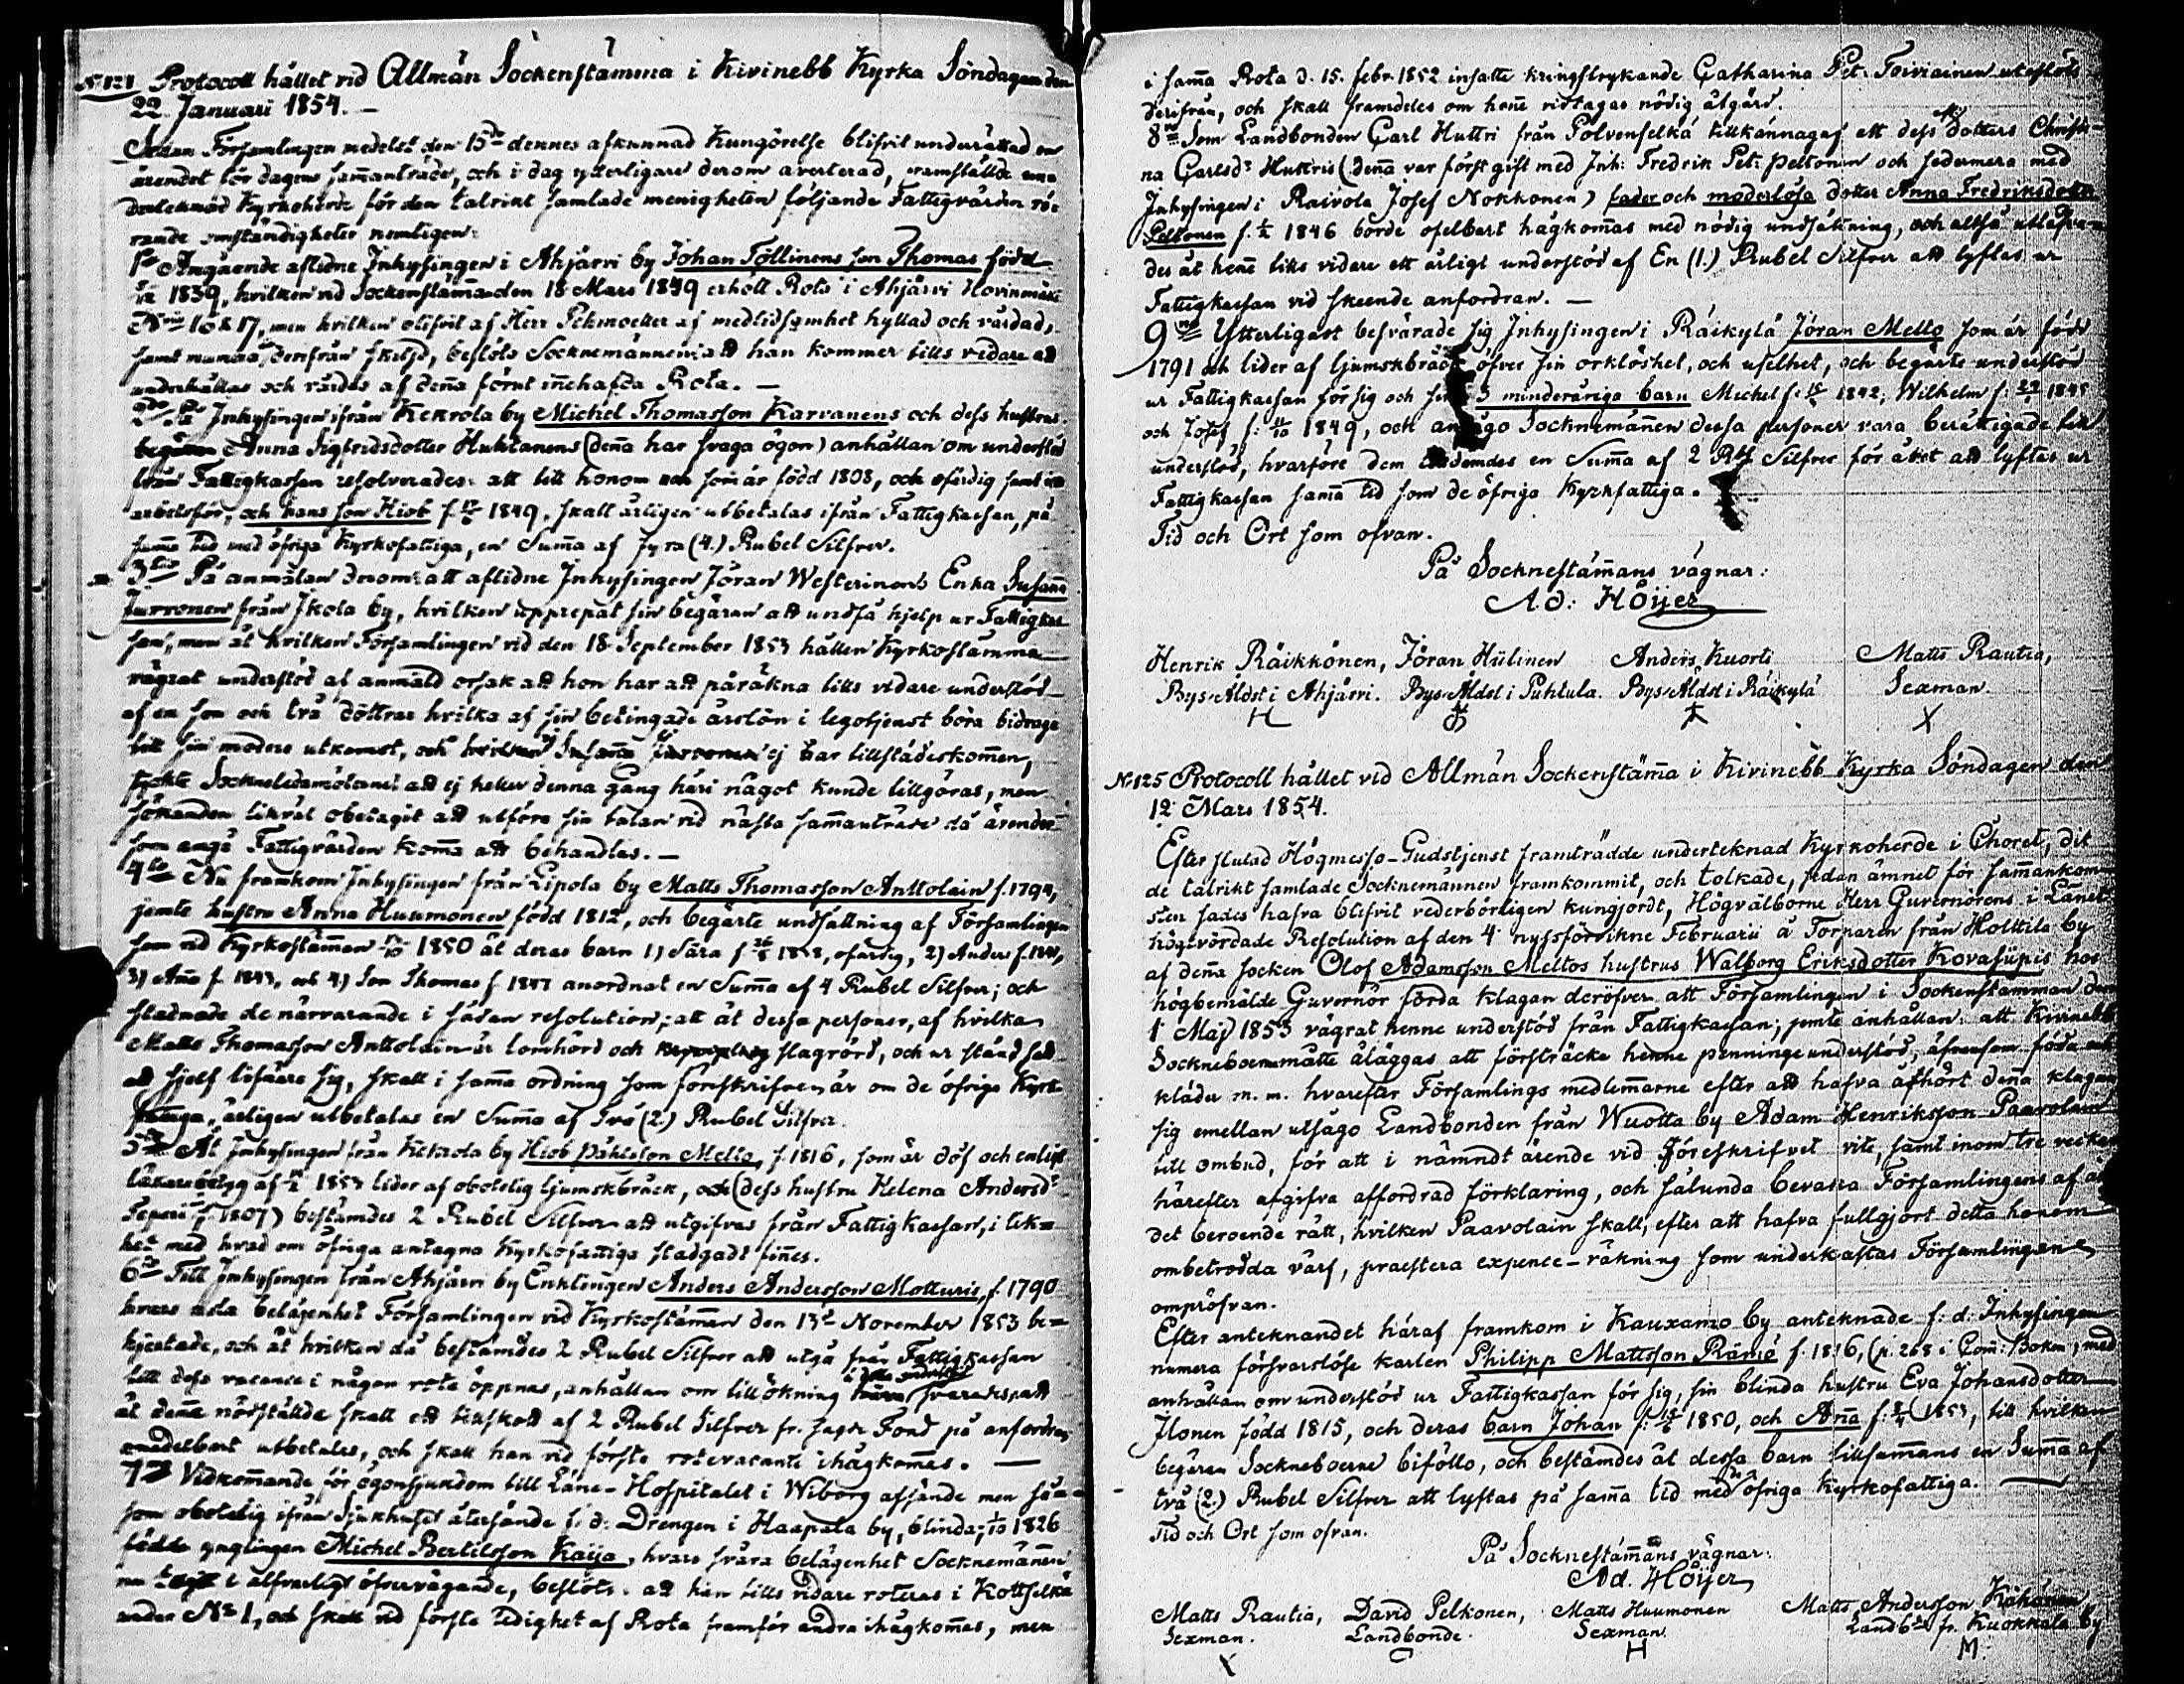 N:o 121 Protocoll hållet vid Allmän Sockenstämma i Kivinebb Kyrka Söndagen den
22. Januari 1854. —
Sedan Församlingen medelst den 15de dennes afkunnad Kungörelse blifvit underrättad om
ärendet för dagens sam̄anträde, och i dag ytterligare derom averterad, framställde un-
dertecknad Kyrkoherde för den talrikt samlade menigheten följande Fattigvården rö-
rande omständigheter nemligen:
1o Angående aflidne Inhysingen i Ahjärvi by Johan Töllinens son Thomas född
1839, hvilken vid Sockenstäm̄an den 18 Mars 1849 erhöll Rota i Ahjärvi Hovinmäki
N:ris 16 & 17, men hvilken blifvit af Herr Pehmoeller af medlidsamhet hyllad och vårdad,
samt numera derifrån skiljd, beslöts Socknemännerna att han kommer tills vidare att
underhållas och vårdas af den̄a förut in̄ehafda Rota. —
2do På Inhysingens från Kekrola by Michel Thomasson Karvanens och dess hustrus
Anna Sigfredsdotter Huhtanens (den̄a har svaga ögon) anhållan om understöd
från Fattigkassan resolverades: att till honom som är född 1808, och ofärdig samt
arbetsför, och hans son Hiob f. 1849, skall årligen utbetalas ifrån Fattigkassan, på
sam̄a tid med öfriga Kyrkofattiga, en Sum̄a af Fyra (4.) Rubel Silfver.
3tio På anmälan derom: att aflidne Inhysingen Jöran Westerinens Enka Susan̄a
Jurvonen från Ikola by, hvilken upprepat sin begäran att undfå hjelp ur Fattigkas-
san, men åt hvilken Församlingen vid den 18 September 1853 hållen Kyrkostämma
vägrat understöd af anmäld orsak att hon har att påräkna tills vidare understöd
af en son och två döttrar hvilka af sin betingade årslön i legotjenst böra bidraga
till sin moders utkomst, och Susan̄a Jurvonen ej har tillstädeskom̄en,
tyckte Sockneledamöterne att ej heller denna gång häri något kunde tillgöras, men
sökanden likväl obetagit att utföra sin talan vid nästa sam̄anträde då ärender
som angå Fattigvården kom̄a att behandlas. —
4to Nu framkom Inhysingen från Lipola by Matts Thomasson Anttolain f. 1794,
jemte hustru Anna Huumonen född 1812, och begärte undsättning af Församlingen
som vid Kyrkostäm̄an 1850 åt deras barn 1) Sara f. 1838, ofärdig, 2) Anders f.
3) An̄a f. 1843, och 4) Son Thomas f. 1847 anordnat en Sum̄a af 4 Rubel Silfver; och
stadnade de närvarande i sådan resolution; att åt dessa personer, af hvilka
Matts Thomasson Anttolain är lomhörd och slagrörd, och ur stånd satt
att sjelf lifnära sig, skall i sam̄a ordning som föreskrifven är om de öfriga Kyrk-
fattiga, årligen utbetalas en Sum̄a af Två (2.) Rubel Silfver.
5to Åt Inhysingen från Kekrola by Hiob Påhlsson Mello, f. 1816, som är döf och enligt
läkarebetyg af 1853 lider af obotelig ljumskbråck, och (dess hustru Helena Andersdr
f. 1807) bestämdes 2 Rubel Silfver att utgifvas från Fattigkassan, i lik=
het med hvad om öfriga antagna Kyrkofattiga stadgadt fin̄es.
6to Till Inhysingen från Ahjärvi by Enklingen Anders Andersson Motturis, f. 1790
hvars usla belägenhet Församlingen vid Kyrkostäm̄an den 13de November 1853 be=
hjertade, och åt hvilken då bestämdes 2 Rubel Silfver att utgå från Fattigkassan
till dess vacance i någon rote öppnas, anhållan om tillökning i detta understöd svarades, att
åt den̄e nödställde skall ett tillskott af 2 Rubel Silfver fr. sagde Fond på anfordran
omedelbart utbetalas, och skall han vid första rotevacante ihågkom̄es. —
7mo Vidkom̄ande för ögonsjukdom till Läne-Hospitalet i Wiborg afsände men så-
som obotelig ifrån Sjukhuset återsände f. d. Drengen i Haapala by, blinda, 1826
födde ynglingen Michel Bertilsson Kaija, hvars svåra belägenhet Sockenmän̄en
nu tagit i alfvarligt öfvervägande, beslöts: att han tills vidare roteras i Kottselkä
under No 1, och skall vid första ledighet af Rota framför andra ihågkom̄as, men
i sam̄a Rota d. 15. febr. 1852 insatte kringstrykande Catharina Pet: Toiviainen uteslöts
derifrån, och skall framdeles om hen̄e vidtagas nödig åtgärd.
8vo Som Landbonden Carl Huttri från Polvenselkä tillkännagaf att dess dotters Christi-
na Carlsdr Huttris (den̄a var först gift med Inh: Fredrik Pet: Peltonen och sedermera med
Inhysingen i Raivola Josef Nokkonen) fader och moderlösa dotter Anna Fredriksdotter
Peltonen f. 1846 borde ofelbart hågkom̄as med nödig undsätning, och altså utlofva-
des åt hen̄e tills vidare ett årligt understöd af En (1.) Rubel Silfver att lyftas ur
Fattigkassan vid skeende anfordran. —
9no Ytterligast besvärade sig Inhysingen i Räikylä Jöran Mello som är född
1791 och lider af ljumskbråck öfver sin orklöshet, och uselhet, och begärte understöd
ur Fattigkassan för sig och sina 3 minderåriga barn Michel f: 1842, Wilhelm f: 1845
och Josef f: 1849, och ansågo Socknemän̄en dessa personer vara berättigade till
understöd, hvarföre dem tilldömdes en Sum̄a af 2 Rbl Silfver för året att lyftas ur
Fattigkassan sam̄a tid som de öfriga Kyrkfattiga.
Tid och Ort som ofvan.
På Socknestäm̄ans vägnar:
Ad: Höijer
Henrik Räikkönen, Jöran Hülinen Anders Kuorti Matts Rautia,
Bys-Äldst i Ahjärvi. Bys-Äldst i Puhtula. Bys-Äldst i Räikylä Sexman.
N:o 125 Protocoll hållet vid Allmän Sockenstäm̄a i Kivinebb Kyrka Söndagen den
12 Mars 1854.
Efter slutad Högmesso-Gudstjenst framträdde underteknad Kyrkoherde i Choret, dit
de talrikt samlade Socknemännen framkommit, och tolkade, sedan ämnet för sam̄ankom-
sten sades hafva blifvit vederbörligen kungjordt, Högvälborne Herr Guvernörens i Länet
högtvördade Resolution af den 4 nyssförvikne Februarii å Torparen från Holttila by
af den̄a socken Olof Adamsson Meltos hustrus Walborg Eriksdotter Kovasüpis hos
högbemälde Guvernör förda klagan deröfver att Församlingen i Sockenstämman den
1 Maj 1853 vägrat henne understöd från Fattigkassan; jemte anhållan: att Kivinebb
Sockneboer måtte åläggas att försträcka henne penningeunderstöd, äfvensom föda och
kläder m. m. hvarefter Församlings medlemarne efter att hafva åhört den̄a klagan
sig emellan utsågo Landbonden från Wuotta by Adam Henriksson Paavolain
till ombud, för att i nämndt ärende vid föreskrifvet vite, samt inom tre veckor
härefter afgifva affordrad förklaring, och sålunda bevaka Församlingens af
det beroende rätt, hvilken Paavolain skall, efter att hafva fullgjort detta honom
ombetrodda värf, praestera expence-räkning som underkastas Församlingens
ompröfvan.
Efter anteknandet häraf framkom i Kauxamo by anteknade f: d: Inhysingen
numera försvarslöse karlen Philipp Mattsson Rämö f. 1816, (p. 268 i Com̄: Boken, med
anhållan om understöd ur Fattigkassan för sig, sin blinda hustru Eva Johansdotter
Ilonen född 1815, och deras barn Johan f: 1850, och An̄a f: 1853, till hvilken
begäran Sockneboerne biföllo, och bestämdes åt dessa barn tillsam̄ans en Sum̄a af
två (2.) Rubel Silfver att lyftas på sam̄a tid med de öfriga Kyrkofattiga. —
Tid och Ort som ofvan.
På Socknestäm̄ans vägnar:
Ad. Höijer
Matts Rautia, David Pelkonen, Matts Huumonen Matts Andersson Kähönen
Sexman. Landbonde. Sexman. Landb: fr. Kuokkala by
H M.